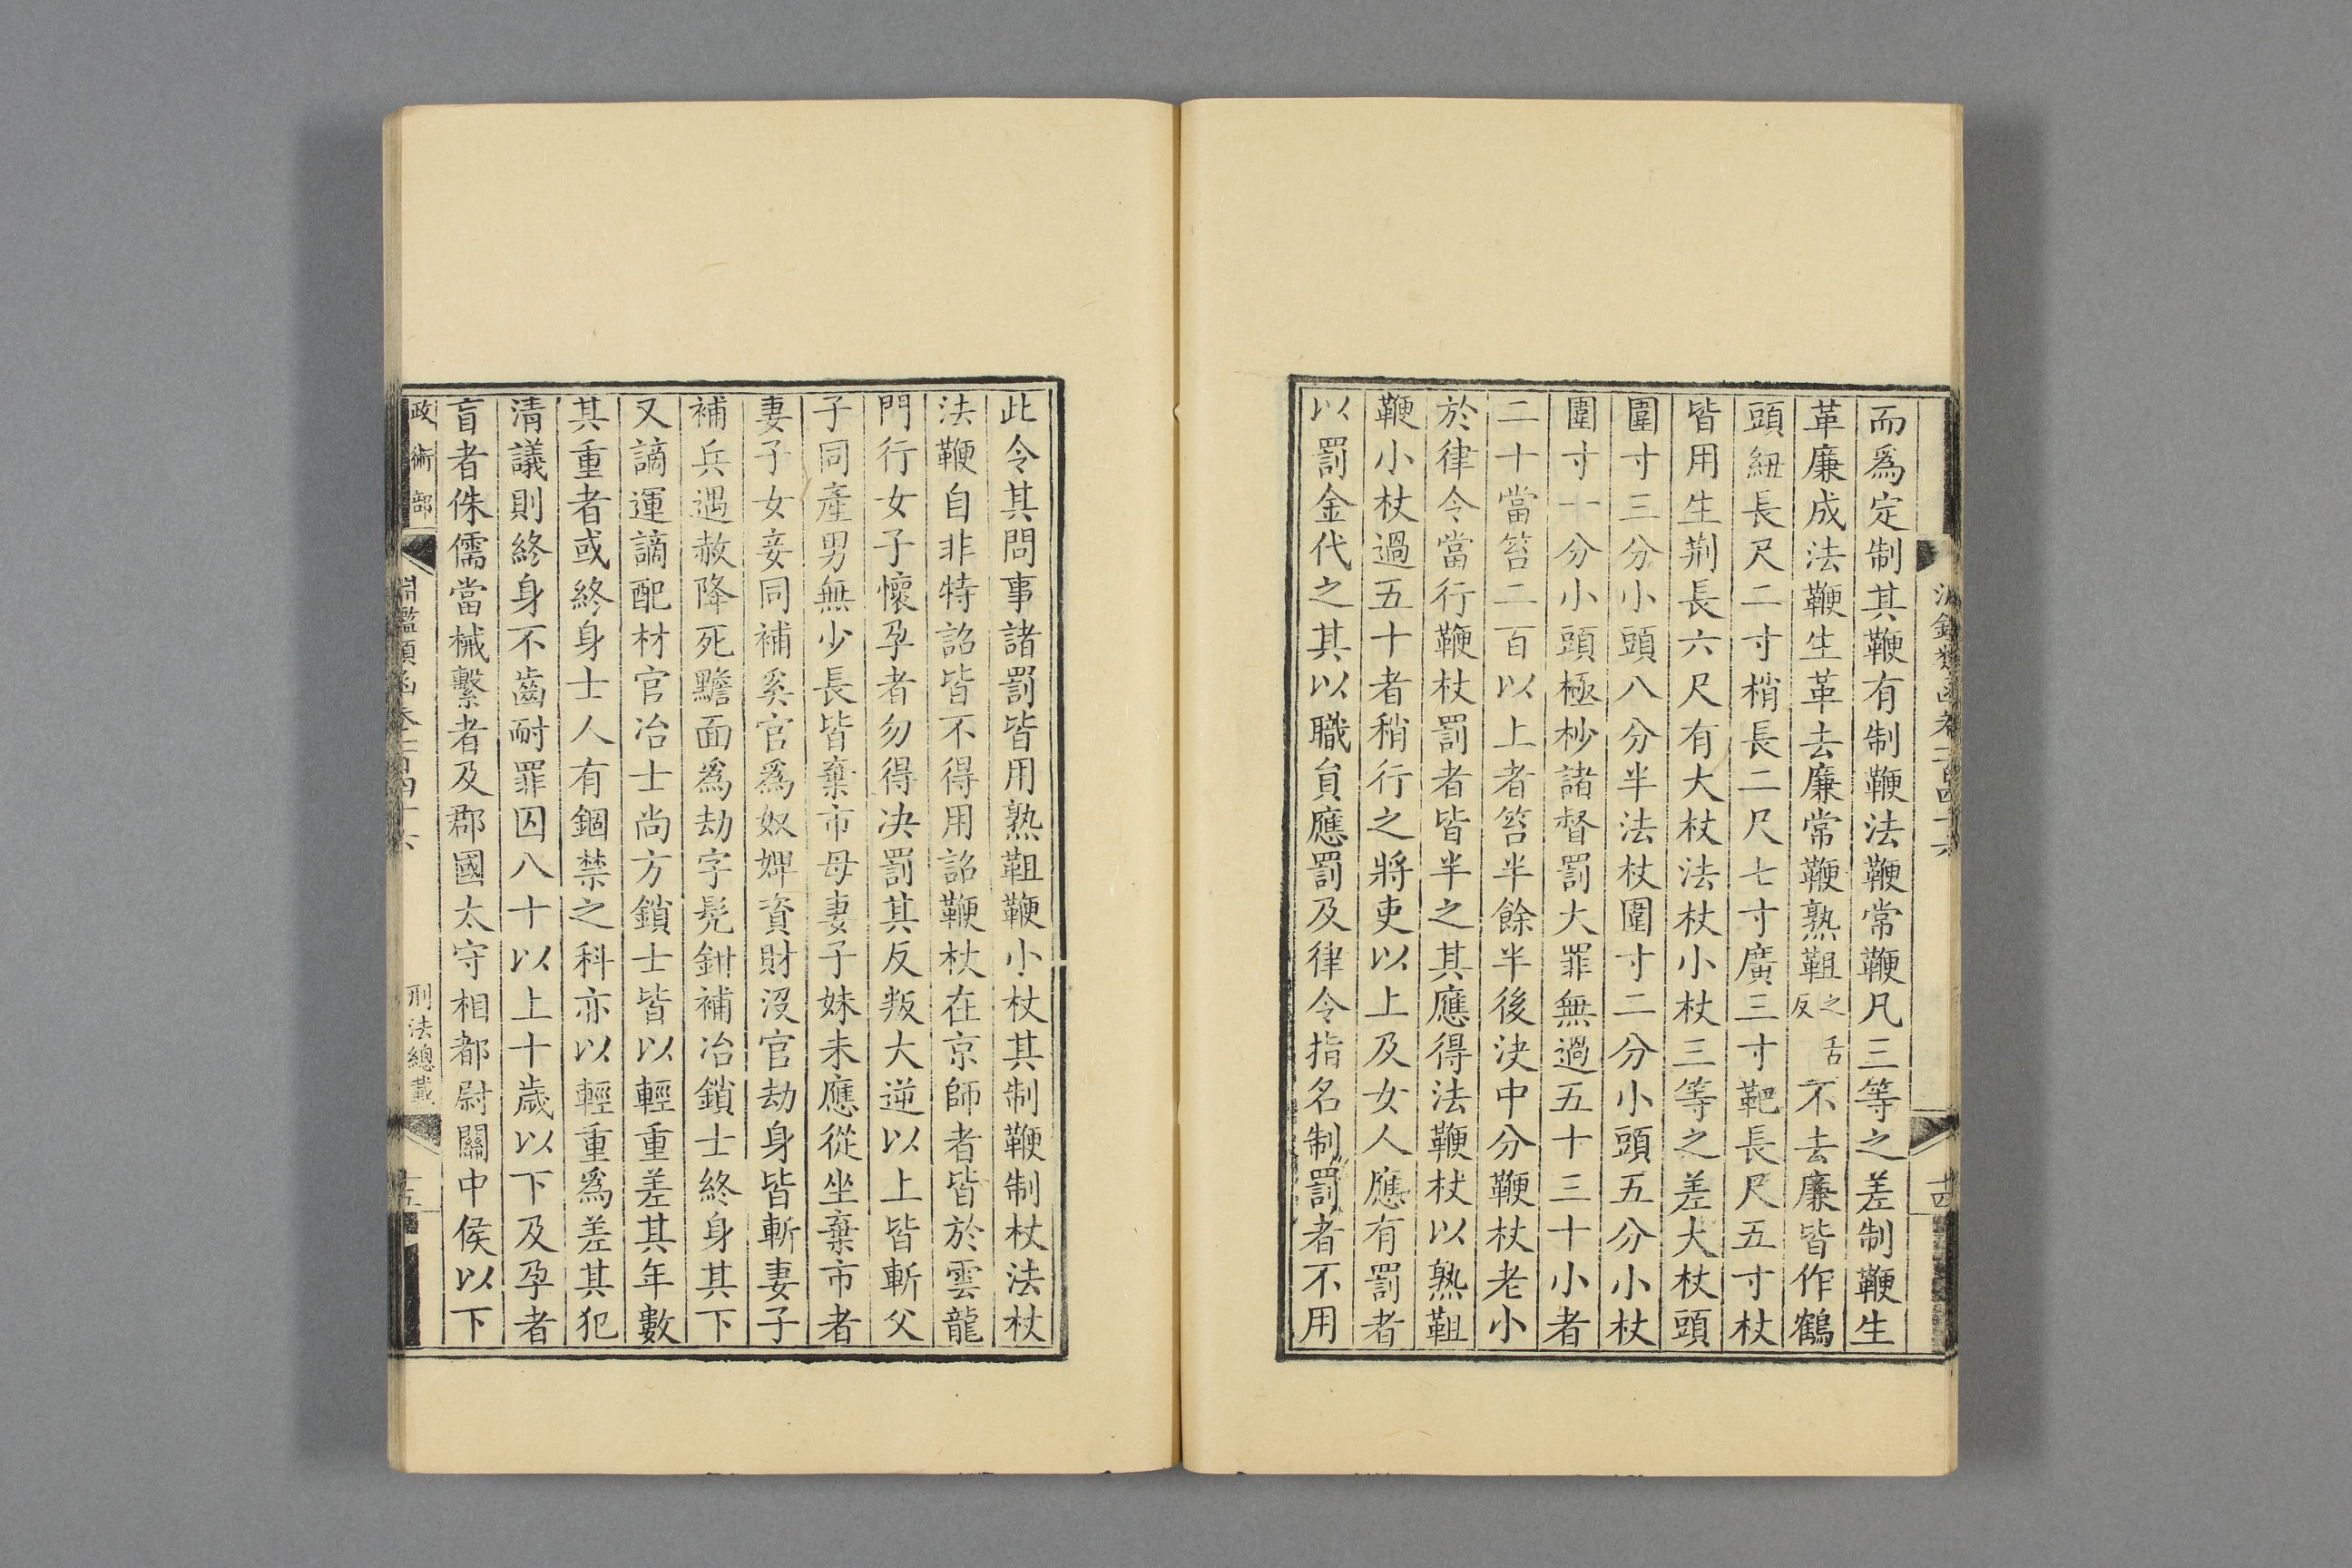 而爲定制其鞭有制鞭法鞭常鞭凡三等之差制鞭生
革廉成法鞭生革去廉常鞭熟靼之舌反不去廉皆作鶴
頭紐長尺二寸梢長二尺七寸廣三寸靶長尺五寸杖
皆用生荆長六尺有大杖法杖小杖三等之差大杖頭
圍寸三分小頭八分半法杖圍寸二分小頭五分小杖
圍寸一分小頭極杪諸督罰大罪無過五十三十小者
二十當笞二百以上者笞半餘半後決中分鞭杖老小
於律令當行鞭杖罰者皆半之其應得法鞭杖以熟靼
鞭小杖過五十者稍行之將吏以上及女人應有罰者
以罰金代之其以職貟應罰及律令指名制罰者不用
此令其問事諸罰皆用熟靼鞭小杖其制鞭制杖法杖
法鞭自非特詔皆不得用詔鞭杖在京師者皆於雲龍
門行女子懷孕者勿得決罰其反叛大逆以上皆斬父
子同產男無少長皆棄市母妻子妹未應從坐棄市者
妻子女妾同補奚官爲奴婢資財沒官劫身皆斬妻子
補兵遇赦降死黵面爲劫字髠鉗補冶鎖士終身其下
又謫運謫配材官冶士尚方鎖士皆以輕重差其年數
其重者或終身士人有錮禁之科亦以輕重爲差其犯
清議則終身不齒耐罪囚八十以上十歲以下及孕者
盲者侏儒當械繫者及郡國太守相都尉關中侯以下
政術部
淵鑑類函卷二百四十六
刑法總載
十五